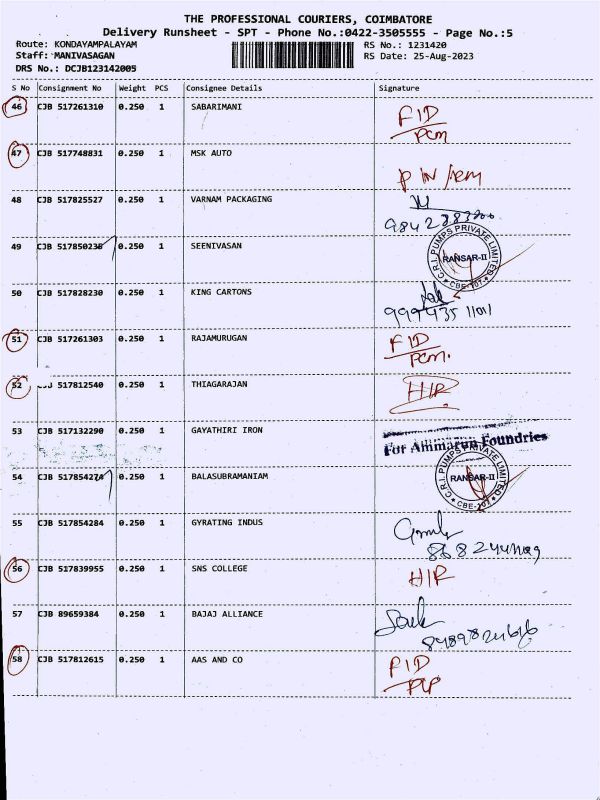 THE PROFESSIONAL COURIERS, COIMBATORE
Delivery Runsheet - SPT - Phone No.:0422-3505555 - Page No.:5
Route: KONDAYAMPALAYAM RS No.: 1231420
Staff: MANIVASAGAN RS Date: 25-Aug-2023
DRS No.: DCJB123142005
S No Consignment No Weight PCS Consignee Details Signature
46 CJB 517261310 0.250 1 SABARIMANI FID
PCM
47 CJB 517748831 0.250 1 MSK AUTO
48 CJB 517825527 0.250 1 VARNAM PACKAGING
49 CJB 517850238 0.250 1 SEENIVASAN C.R.I. PUMPS PRIVATE LIMITED RANSAR-II CBE-107
50 CJB 517828230 0.250 1 KING CARTONS
51 CJB 517261303 0.250 1 RAJAMURUGAN FID
PCM.
52 517812540 0.250 1 THIAGARAJAN HIR
53 CJB 517132290 0.250 1 GAYATHIRI IRON For Ammarun Foundries
54 CJB 517854274 0.250 1 BALASUBRAMANIAM C.R.I. PUMPS PRIVATE LIMITED RANSAR-II CBE-107
55 CJB 517854284 0.250 1 GYRATING INDUS
56 CJB 517839955 0.250 1 SNS COLLEGE HIR
57 CJB 89659384 0.250 1 BAJAJ ALLIANCE
58 CJB 517812615 0.250 1 AAS AND CO FID